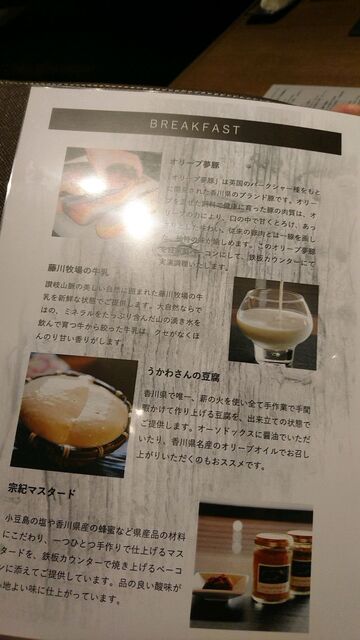 BREAKFAST
オリーブ夢豚
「オリーブ夢豚」は英国のバークシャー種をもと
に開発された香川県のブランド豚です。オリ
ーブを混ぜた飼料で健康に育った豚の肉質は、オ
リーブの力により、口の中で甘くとろけ、あっ
味わい。従来の豚肉とは一線を画し
特の味が愉しめます。このオリーブ夢豚
ーコンにして、鉄板カウンターにて
実演調理いたします。
藤川牧場の牛乳
讃岐山脈の美しい自然に囲まれた藤川牧場の牛
乳を新鮮な状態でご提供します。大自然ならで
はの、ミネラルをたっぷり含んだ山の湧き水を
飲んで育つ牛から絞った牛乳は、クセがなくほ
んのり甘い香りがします。
うかわさんの豆腐
香川県で唯一、薪の火を使い全て手作業で手間
暇かけて作り上げる豆腐を、出来立ての状態で
ご提供します。オーソドックスに醤油でいただ
いたり、香川県名産のオリーブオイルでお召し
上がりいただくのもおススメです。
宗紀マスタード
小豆島の塩や香川県産の蜂蜜など県産品の材料
にこだわり、一つひとつ手作りで仕上げるマス
タードを、鉄板カウンターで焼き上げるベーコ
ンに添えてご提供しています。品の良い酸味が
心地よい味に仕上がっています。